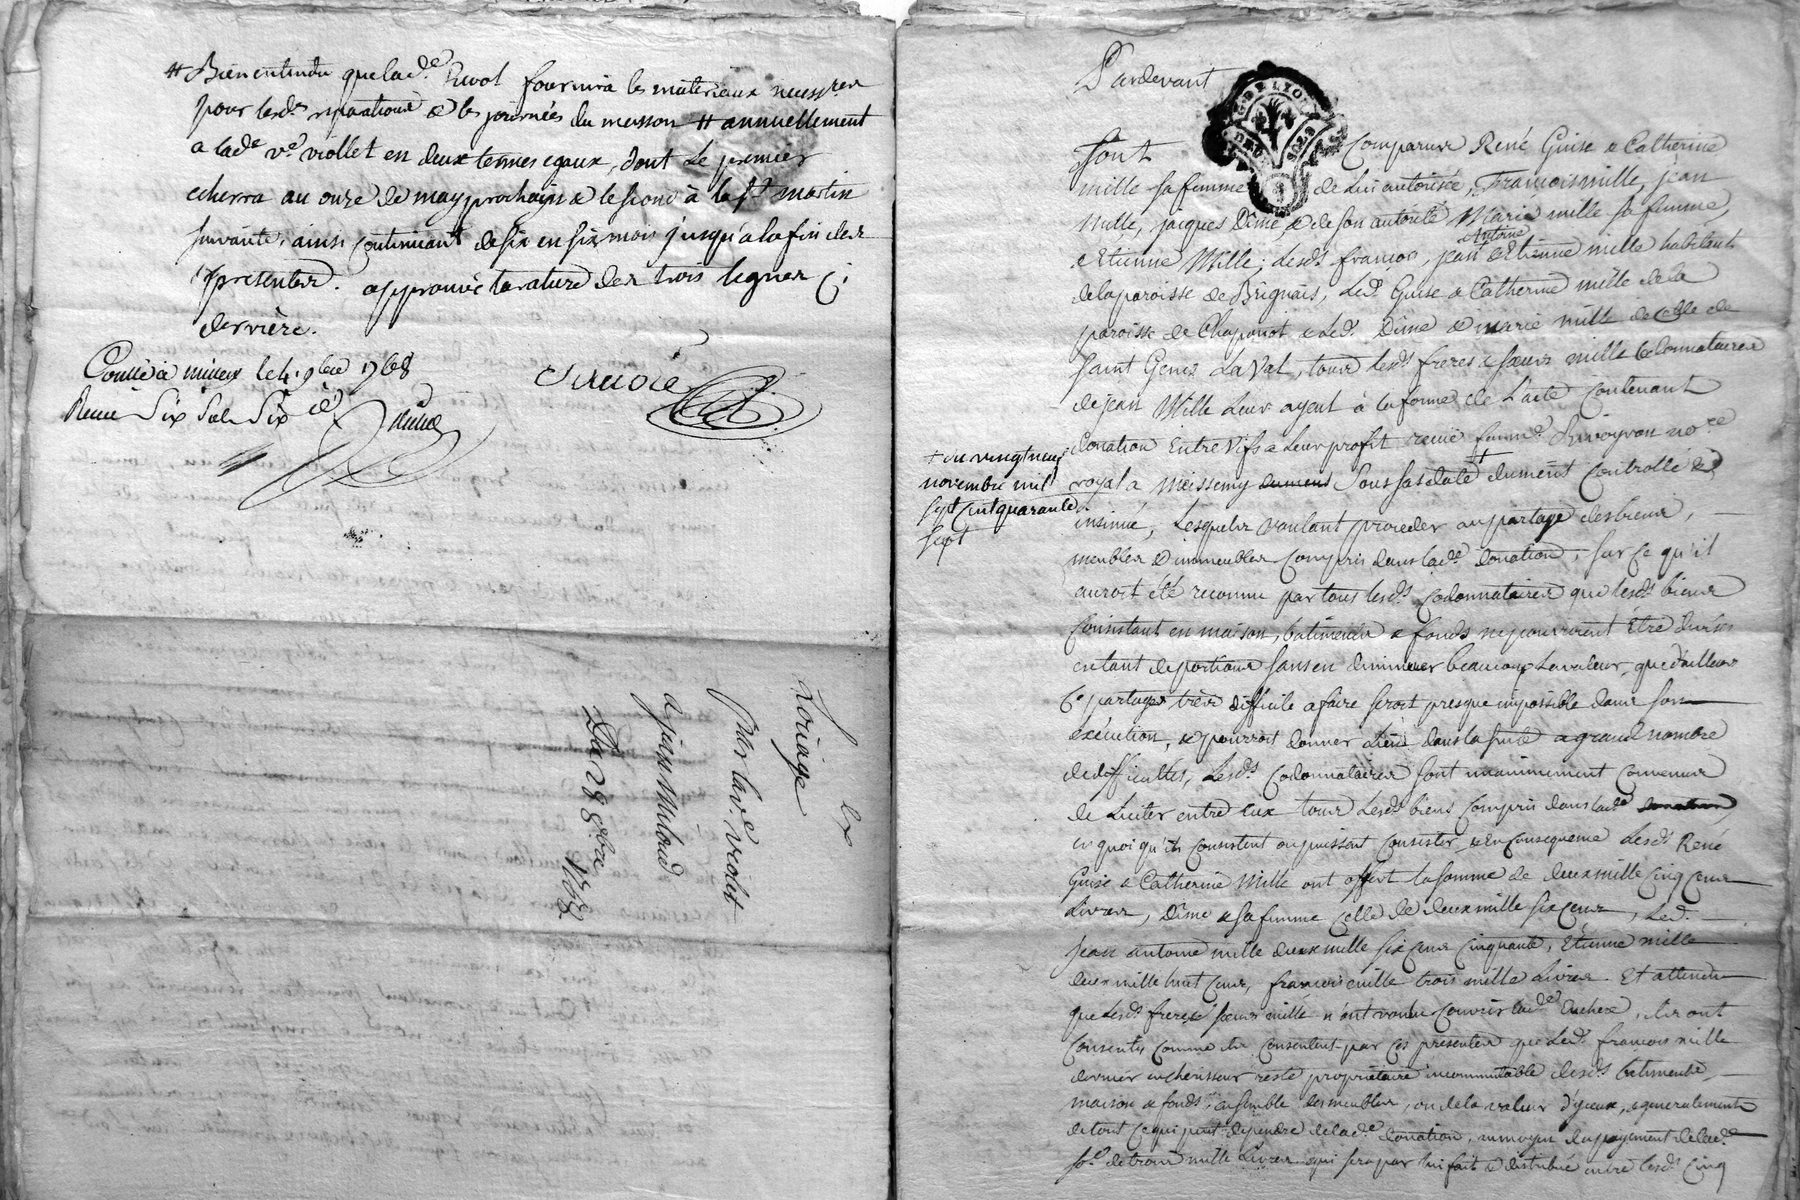 # Bien entendu que lad.e fournira les materiaux necessres
pour lesd.s reparations & les journées du masson # annuellement
a lad.e v.e viollet en deux termes egaux, dont le premier
echerra au onze de may prochain & le second à la s.t martin
suivante, ainsi continuant de six en six mois jusqu'a la fin des
presentes. approuvé la rature des trois lignes cy
derriere.
Conllé à le 4. 9bre 1768
Receu Six Sols Six
Loiage
par la v.e violet
a jean
Du 28 8bre
Pardevant
G. DE LYON
DEUX SOLS
Sont Comparus René Guise & Catherine
mille sa femme de lui autorisée, François mille, jean
mille, jacques Dime, & de son autorité Marie mille sa femme,
& Etienne Mille; lesd.s françois, jean Antoine & Etienne mille habitants
de la paroisse de Brignais, led. Guise & Catherine mille de la
paroisse de Chaponost & led. Dime & marie mille de celle de
Saint Genis Laval, tous lesd.s freres & soeurs mille codonnataires
de jean Mille leur ayeul à la forme de l'acte contenant
Donation Entre vifs a leur profit receu no.re
+ du vingt neuf
novembre mil
sept cent quarante
sept
royal a Messemy dument sous sa date + dument controllé &
insinué, Lesquels voulant proceder au partage des biens,
meubles & immeubles compris dans lad.e donation, sur ce qu'il
auroit été reconnu par tous lesd.s Codonnataires que lesd.s biens
consistant en maison, batiments & fonds ne pourroient Etre divisés
en tant de portions sans en diminuer beaucoup la valeur, que d'ailleurs
ce partage très difficile a faire seroit presque impossible dans son
exécution, & pourroit donner Lieu dans la suite a grand nombre
de difficultés, Lesd.s Codonnataires sont unanimement convenus
de Liciter entre eux tous Lesd.s biens compris dans lad.e donation
en quoi qu'ils consistent ou puissent consister, & En consequence Lesd.s René
Guise & Catherine Mille ont offert la somme de deux mille cinq cens
Livres, Dime & sa femme celle de deux mille six cens, Led.
jean antoine mille deux mille six cens cinquante, Etienne mille
deux mille huit cens, françois mille trois mille Livres. Et attendu
que Lesd.s freres & soeurs mille n'ont voulu couvrir lad.e Enchere, ils ont
consenti, comme ils consentent par ces presentes que Led.s françois mille
dernier encherisseur reste proprietaire incommutable desd.s batiments
maison & fonds, ensemble des meubles, ou de la valeur d'yceux, & generalement
de tout ce qui peut dependre de lad.e donation, au moyen du payement de lad.e
so.e de trois mille Livres qui sera par lui fait & distribué entre lesd.s cinq